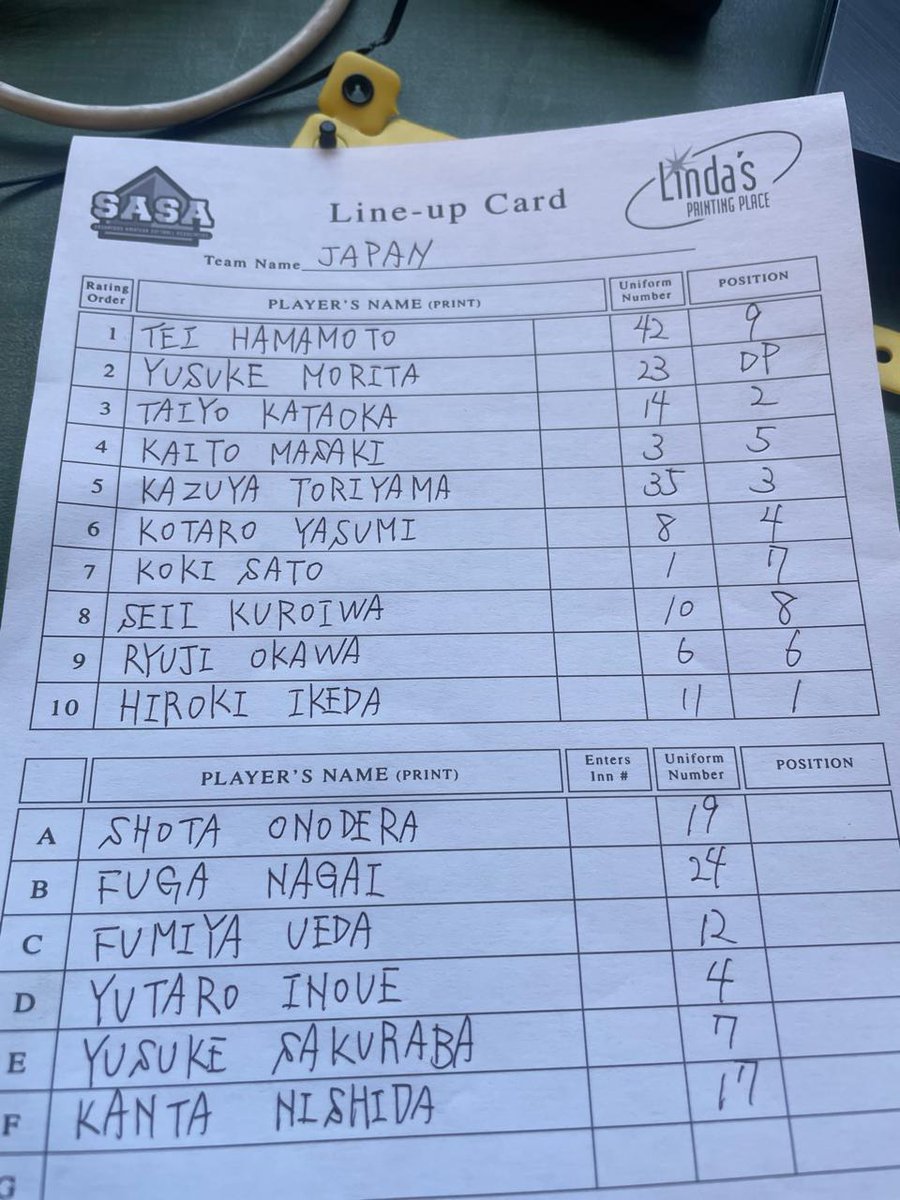 SASA
Line-up Card
Linda's
PRINTING PLACE
Team Name JAPAN
Rating Order PLAYER'S NAME (PRINT) Uniform Number POSITION
1 TEI HAMAMOTO 42 9
2 YUSUKE MORITA 23 DP
3 TAIYO KATAOKA 14 2
4 KAITO MASAKI 3 5
5 KAZUYA TORIYAMA 35 3
6 KOTARO YASUMI 8 4
7 KOKI SATO 1 7
8 SEII KUROIWA 10 8
9 RYUJI OKAWA 6 6
10 HIROKI IKEDA 11 1
PLAYER'S NAME (PRINT) Enters Inn # Uniform Number POSITION
A SHOTA ONODERA 19
B FUGA NAGAI 24
C FUMIYA UEDA 12
D YUTARO INOUE 4
E YUSUKE SAKURABA 7
F KANTA NISHIDA 17
G